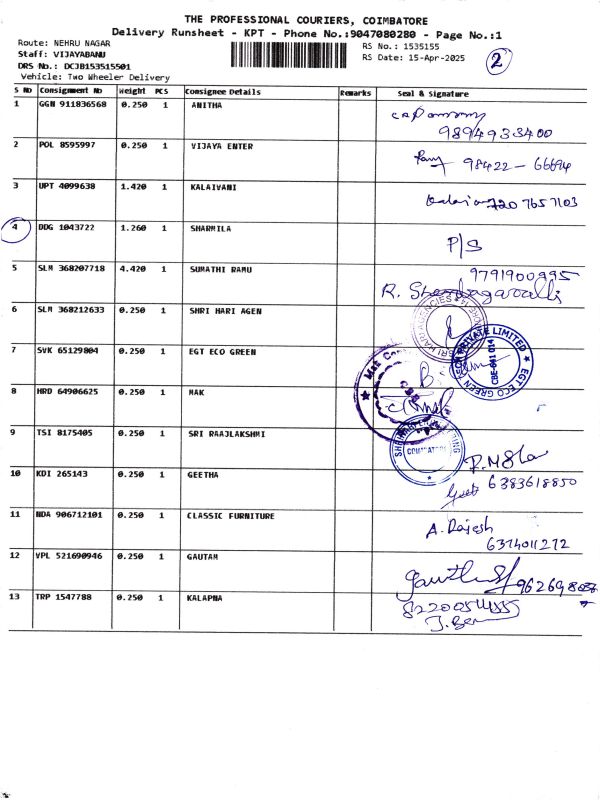 THE PROFESSIONAL COURIERS, COIMBATORE
Delivery Runsheet - KPT - Phone No.:9047080280 - Page No.:1
Route: NEHRU NAGAR
RS No.: 1535155
Staff: VIJAYABANU
RS Date: 15-Apr-2025
2
DRS No.: DCJB153515501
Vehicle: Two Wheeler Delivery
S No Consignment No Weight PCS Consignee Details Remarks Seal & Signature
1 GGN 911836568 0.250 1 ANITHA
9894933400
2 POL 8595997 0.250 1 VIJAYA ENTER
98422 - 66694
3 UPT 4099638 1.420 1 KALAIVANI
7207657103
4 DDG 1043722 1.260 1 SHARMILA
P/S
5 SLM 368207718 4.420 1 SUMATHI RAMU
9791900995
R. Shenbagavalli
6 SLM 368212633 0.250 1 SHRI HARI AGEN
7 SVK 65129804 0.250 1 EGT ECO GREEN
EGT ECO GREEN TECH PRIVATE LIMITED
CBE-641 014
8 HRD 64906625 0.250 1 MAK
9 TSI 8175405 0.250 1 SRI RAAJLAKSHMI
10 KDI 265143 0.250 1 GEETHA
6383618850
11 NDA 906712101 0.250 1 CLASSIC FURNITURE
A. Rajesh
6374011272
12 VPL 521690946 0.250 1 GAUTAM
13 TRP 1547788 0.250 1 KALAPNA